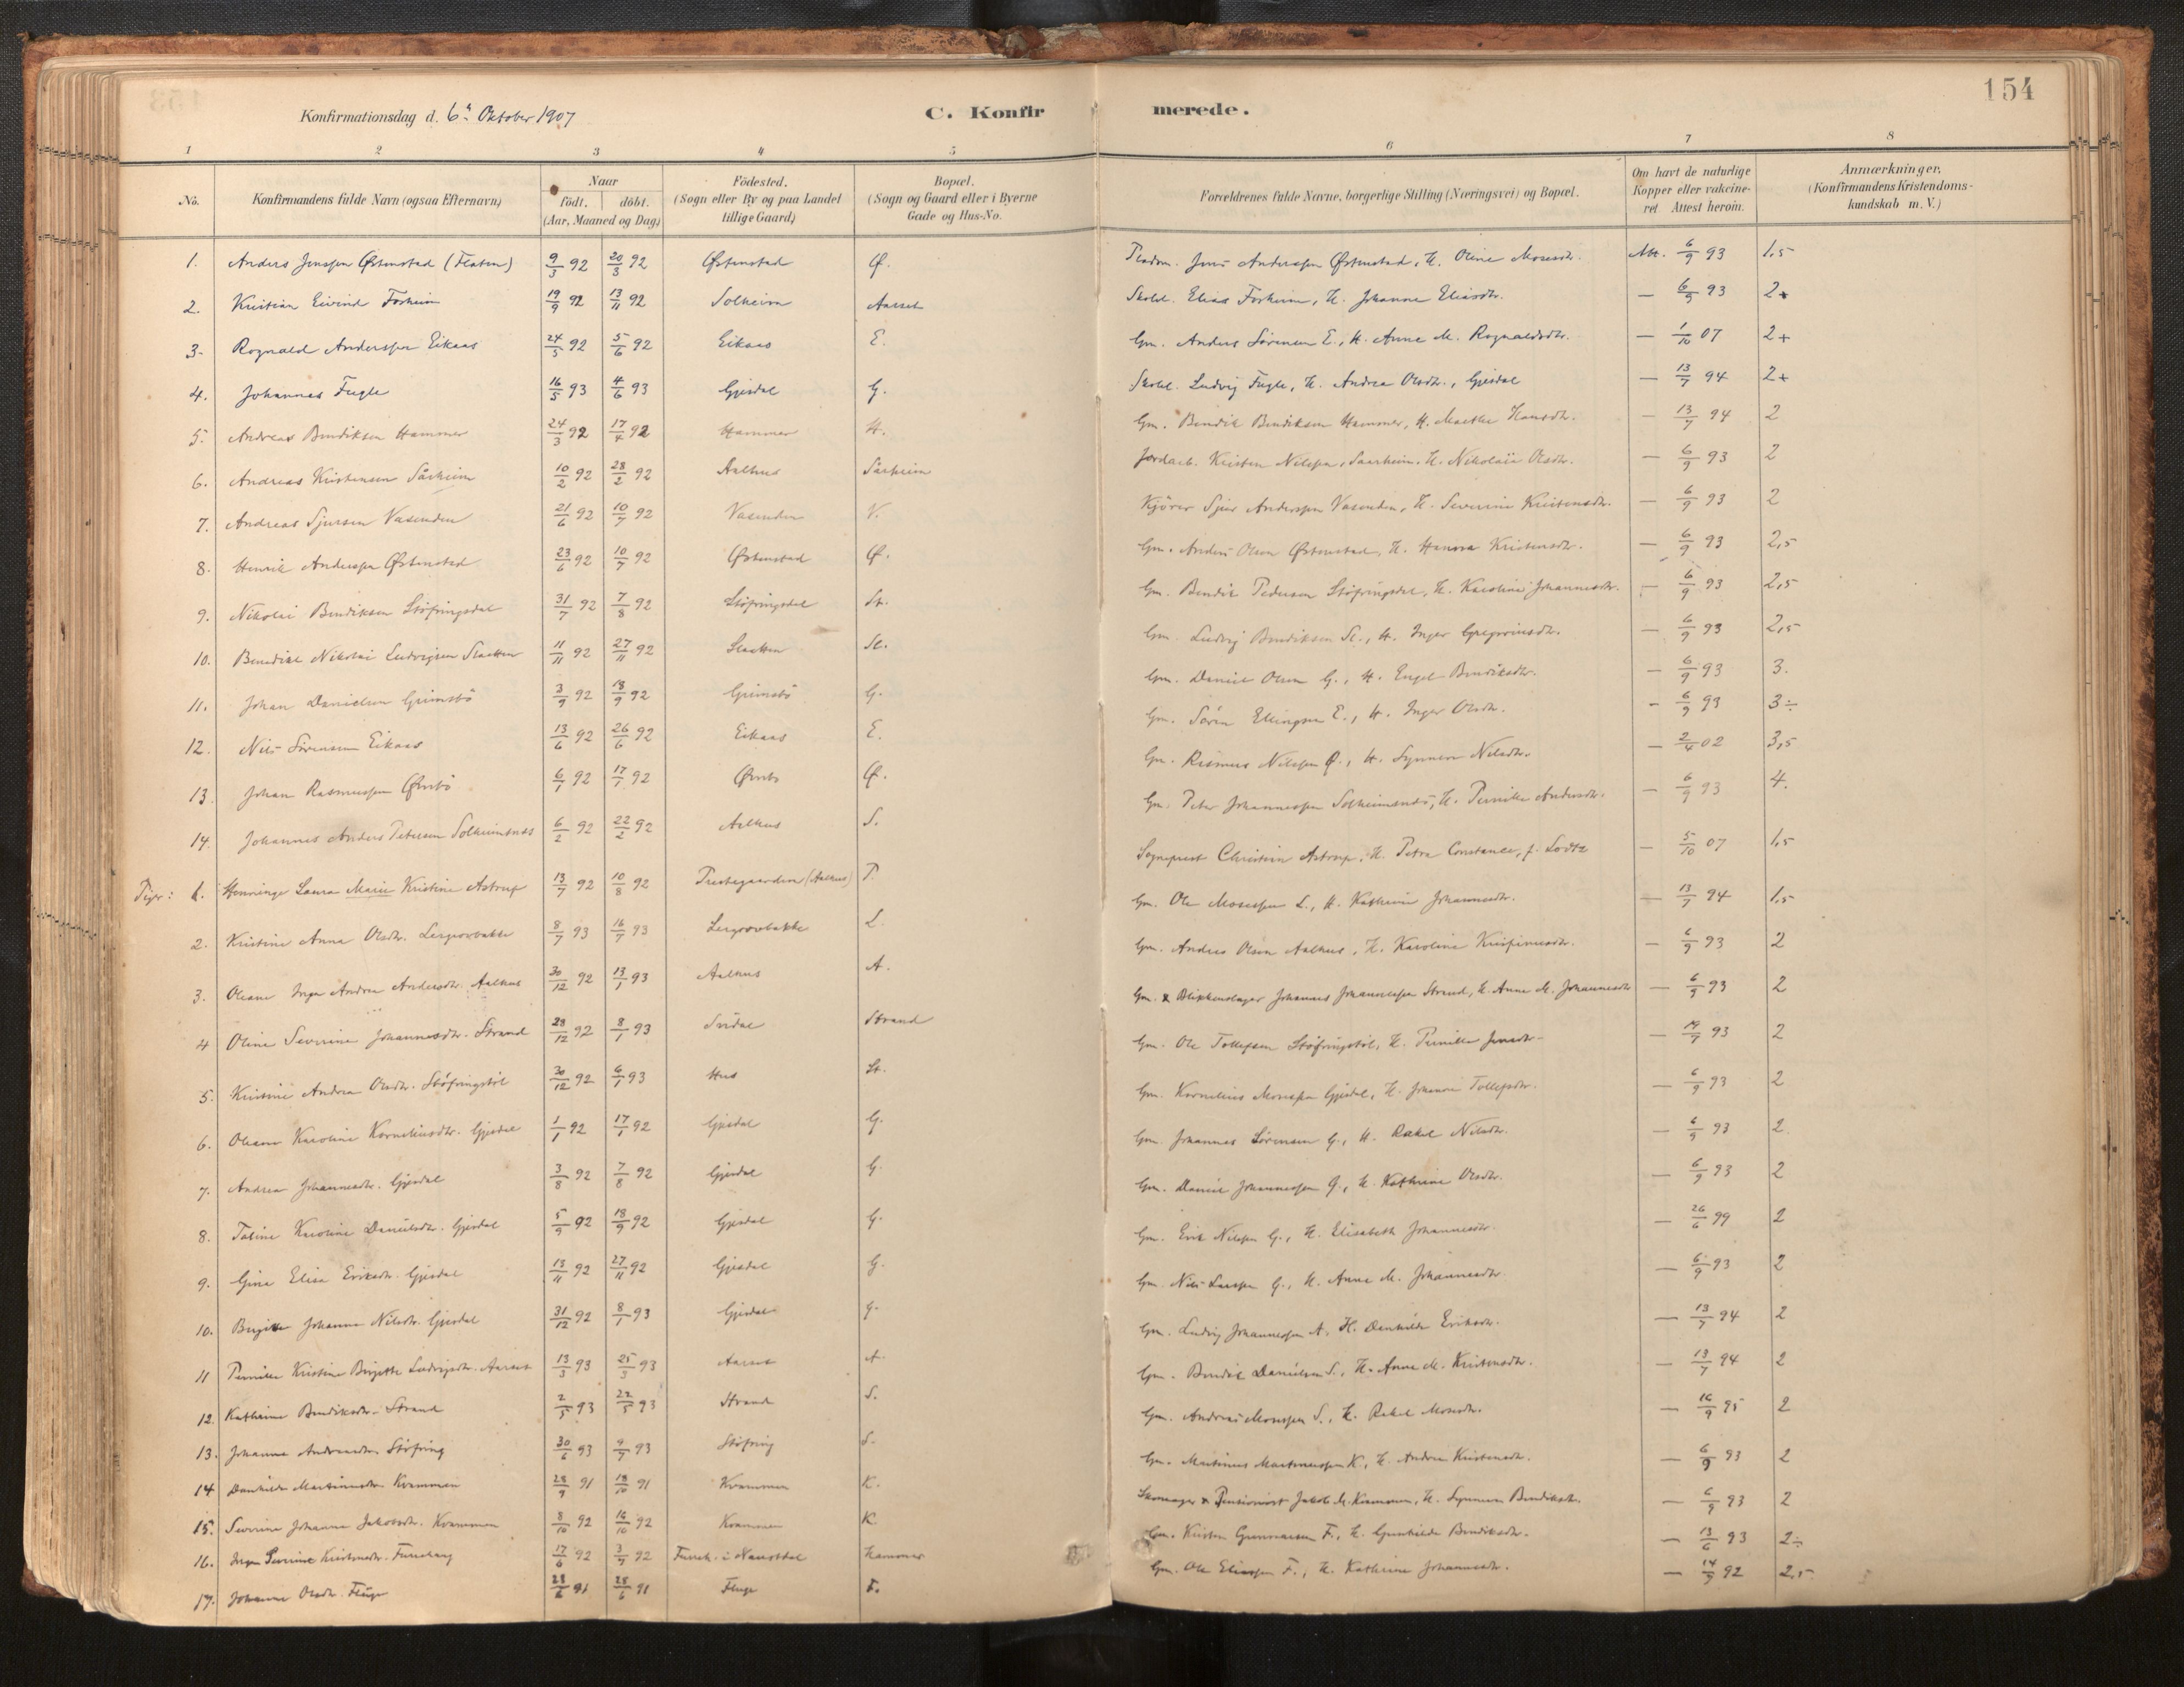 154
Konfirmationsdag d. 6te Oktober 1907
C. Konfirmerede.
1 2 3 4 5 6 7 8
No. | Konfirmandens fulde Navn (ogsaa Efternavn) | Naar født. døbt. (Aar, Maaned og Dag) | Fødested. (Sogn eller By og paa Landet tillige Gaard) | Bopæl. (Sogn og Gaard eller i Byerne Gade og Hus-No. | Forældrenes fulde Navne, borgerlige Stilling (Næringsvei) og Bopæl. | Om havt de naturlige Kopper eller vakcineret Attest herom. | Anmærkninger. (Konfirmandens Kristendomskundskab m. V.)
1. Anders Jenssen Østenstad (Flaten) 9/3 92 20/3 92 Østenstad Ø. Pladsm. Jens Anderssen Østenstad, H. Oline Mosesdtr. Att. 6/9 93 1,5
2. Kristian Eivind Forheim 19/9 92 13/11 92 Solheim Aarset Skolel. Elias Forheim, H. Johanne Eliasdtr. — 6/9 93 2+
3. Rognald Anderssen Eikaas 24/5 92 5/6 92 Eikaas E. Gm. Anders Sørensen E., H. Anne M. Rognaldsdtr. — 1/10 07 2+
4. Johannes Fugle 16/5 93 4/6 93 Gjesdal G. Skolel. Ludvig Fugle, H. Andrea Olsdtr., Gjesdal — 13/7 94 2+
5. Andreas Bendiksen Hammer 24/3 92 17/4 92 Hammer H. Gm. Bendik Bendiksen Hammer, H. Marthe Hansdtr. — 13/7 94 2
6. Andreas Kristensen Sårheim 10/2 92 28/2 92 Aalhus Sårheim Jordarb. Kristen Nilssen, Saarheim, H. Nikolaia Olsdtr. — 6/9 93 2
7. Andreas Sjursen Vasenden 21/6 92 10/7 92 Vasenden V. Kjører Sjur Anderssen Vasenden, H. Severine Kristensdtr. — 6/9 93 2
8. Henrik Anderssen Østenstad 23/6 92 10/7 92 Østenstad Ø. Gm. Anders Olsen Østenstad, H. Hanna Kristensdtr. — 6/9 93 2,5
9. Nikolai Bendiksen Støfringsdal 31/7 92 7/8 92 Støfringsdal St. Gm. Bendik Pedersen Støfringsdal, H. Karoline Johannesdtr. — 6/9 93 2,5
10. Benedikt Nikolai Ludvigsen Slaatten 11/11 92 27/11 92 Slaatten Sl. Gm. Ludvig Bendiksen Sl., H. Inger Gregoriusdtr. — 6/9 93 2,5
11. Johan Danielsen Grimsbø 3/9 92 18/9 92 Grimsbø G. Gm. Daniel Olsen G., H. Engel Bendiksdtr. — 6/9 93 3.
12. Nils Sørensen Eikaas 13/6 92 26/6 92 Eikaas E. Gm. Søren Ellingsen E., H. Inger Olsdtr. - 6/9 93 3÷
13. Johan Rasmussen Ørsbø 6/7 92 17/7 92 Ø. Gm. Rasmus Nilssen Ø., H. Synneva Nilsdtr. — 2/4 02 3,5
14. Johannes Anders Petersen Solheimsnes 6/2 92 22/2 92 Aalhus S. Gm. Peter Johannessen Solheimsnes, H. Pernille Andersdtr. — 6/9 93 4.
Piger: 1. Henninge Laura Marie Kristine Astrup 13/7 92 10/8 92 Prestegaarden (Aalhus) P. Sogneprest Christian Astrup, H. Petra Constance, f. Lodtz — 5/10 07 1,5
2. Kristine Anna Olsdtr. Lergrovbakke 8/7 93 16/7 93 Lergrovbakke L. Gm. Ole Mosessen L., H. Kathrine Johannesdtr. — 13/7 94 1,5
3. Oleane Inga Andrea Andersdtr. Aalhus 30/12 92 13/1 93 Aalhus A. Gm. Anders Olsen Aalhus, H. Karoline Krispinusdtr. — 6/9 93 2
4 Oline Severine Johannesdtr. Strand 28/12 92 8/1 93 Svidal Strand Gm. & Blikkenslager Johannes Johannessen Strand, H. Anne M. Johannesdtr — 6/9 93 2
5. Kristine Andrea Olsdtr. Støfringstøl 30/12 92 6/1 93 Hus St. Gm. Ole Tollefsen Støfringstøl, H. Pernille Jensdtr — 14/7 93 2
6. Oleane Karoline Korneliusdtr. Gjesdal 1/1 92 17/1 92 Gjesdal G. Gm. Kornelius Monssen Gjesdal, H. Johanne Tollefsdtr. — 6/9 93 2
7. Andrea Johannesdtr. Gjesdal 3/8 92 7/8 92 Gjesdal G. Gm. Johannes Sørensen G., H. Rakel Nilsdtr. — 6/9 93 2.
8. Taline Karoline Danielsdtr. Gjesdal 5/9 92 18/9 92 Gjesdal G. Gm. Daniel Johannessen G., H. Kathrine Olsdtr. — 6/9 93 2
9. Gina Elisa Eriksdtr. Gjesdal 13/11 92 27/11 92 Gjesdal G. Gm. Erik Nilssen G., H. Elisabeth Johannesdtr. — 26/6 99 2
10. Birgitte Johanne Nilsdtr. Gjesdal 31/12 92 8/1 93 Gjesdal G. Gm. Nils Larssen G., H. Anne M. Johannesdtr. — 6/9 93 2
11 Pernille Kristine Birgitte Ludvigsdtr. Aarset 13/3 93 25/3 93 Aarset A. Gm. Ludvig Johannessen A., H. Danhilde Eriksdtr. — 13/7 94 2
12. Kathrine Bendiksdtr. Strand 2/5 93 22/5 93 Strand S. Gm. Bendik Danielsen S., H. Anne M. Kristensdtr. — 13/7 94 2
13. Johanne Andreasdtr. Støfring 30/6 93 9/7 93 Støfring S. Gm. Andreas Monssen S., H. Rakel Mosesdtr. — 16/9 95 2
14 Danhilde Martinusdtr. Kvammen 28/9 91 18/10 91 Kvammen K. Gm. Martinus Martinussen K., H. Andrea Kristensdtr. — 6/9 93 2
15. Severine Johanne Jakobsdtr. Kvammen 8/10 92 16/10 92 Kvammen K. Skomager & Pensionist Jakob M. Kvammen, H. Synneva Bendiksdtr. — 6/9 93 2
16. Inga Severine Kristensdtr. Furehaug 17/6 92 3/7 92 Fureh. i Naustdal Hammer Gm. Kristen Gunnarsen F., H. Gunhilde Bendiksdtr. — 13/6 93 2÷
17. Johanne Olsdtr. Fluge 28/6 91 28/6 91 Fluge F. Gm. Ole Eliassen F., H. Kathrine Johannesdtr. — 14/7 92 2,5